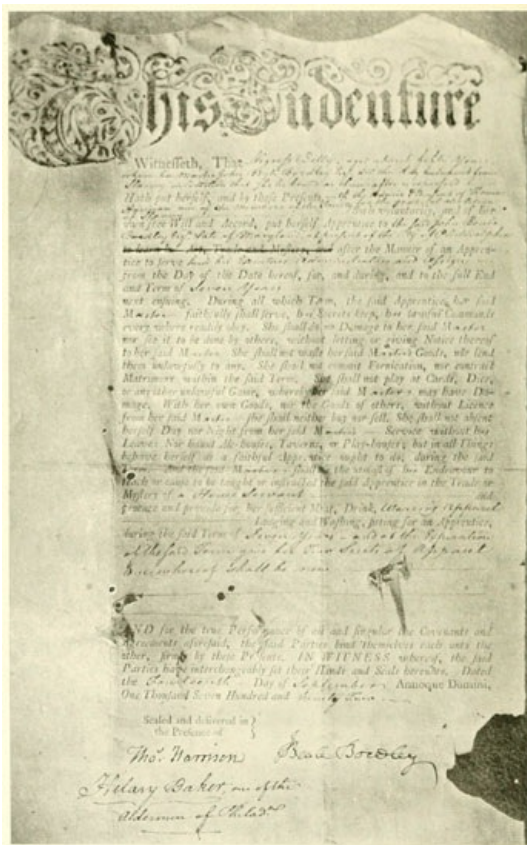 This Indenture
Witnesseth, That Negress aged about Years
whom her Master Bordley
Slavery
Hath put herself, and by these Presents,
voluntarily, and of her
own free Will and Accord, put herself Apprentice to the said
Bordley
to learn his Art, Trade and Mystery, and after the Manner of an Appren-
tice to serve
from the Day of the Date hereof, for, and during, and to the full End
and Term of Seven Years
next ensuing. During all which Term, the said Apprentice, her said
Master faithfully shall serve, his Secrets keep, his lawful Commands
every where readily obey. She shall do no Damage to her said Master
nor see it to be done by others, without letting or giving Notice thereof
to her said Master. She shall not waste her said Master's Goods, nor lend
them unlawfully to any. She shall not commit Fornication, nor contract
Matrimony within the said Term. She shall not play at Cards, Dice,
or any other unlawful Game, whereby her said Master may have Da-
mage. With her own Goods, nor the Goods of others, without Licence
from her said Master she shall neither buy nor sell. She shall not absent
herself Day nor Night from her said Master's Service without his
Leave: Nor haunt Ale-houses, Taverns, or Play-houses; but in all Things
behave herself as a faithful Apprentice ought to do, during the said
Term. And the said Master shall the utmost of his Endeavour to
teach or cause to be taught or instructed the said Apprentice in the Trade or
Mystery of a House Servant and
procure and provide for her sufficient Meat, Drink, Wearing Apparel
Lodging and Washing, fitting for an Apprentice,
during the said Term of Seven Years and at the Expiration
of the said Term give her Two Suits of Apparel
shall be new
AND for the true Performance of all and singular the Covenants and
Agreements aforesaid, the said Parties bind themselves each unto the
other, firmly by these Presents. IN WITNESS whereof, the said
Parties have interchangeably set their Hands and Seals hereunto. Dated
the Day of September Annoque Domini,
One Thousand Seven Hundred and ninety Two
Sealed and delivered in
the Presence of
Thos. Harrison Beale Bordley
Hilary Baker, one of the
aldermen of Philada